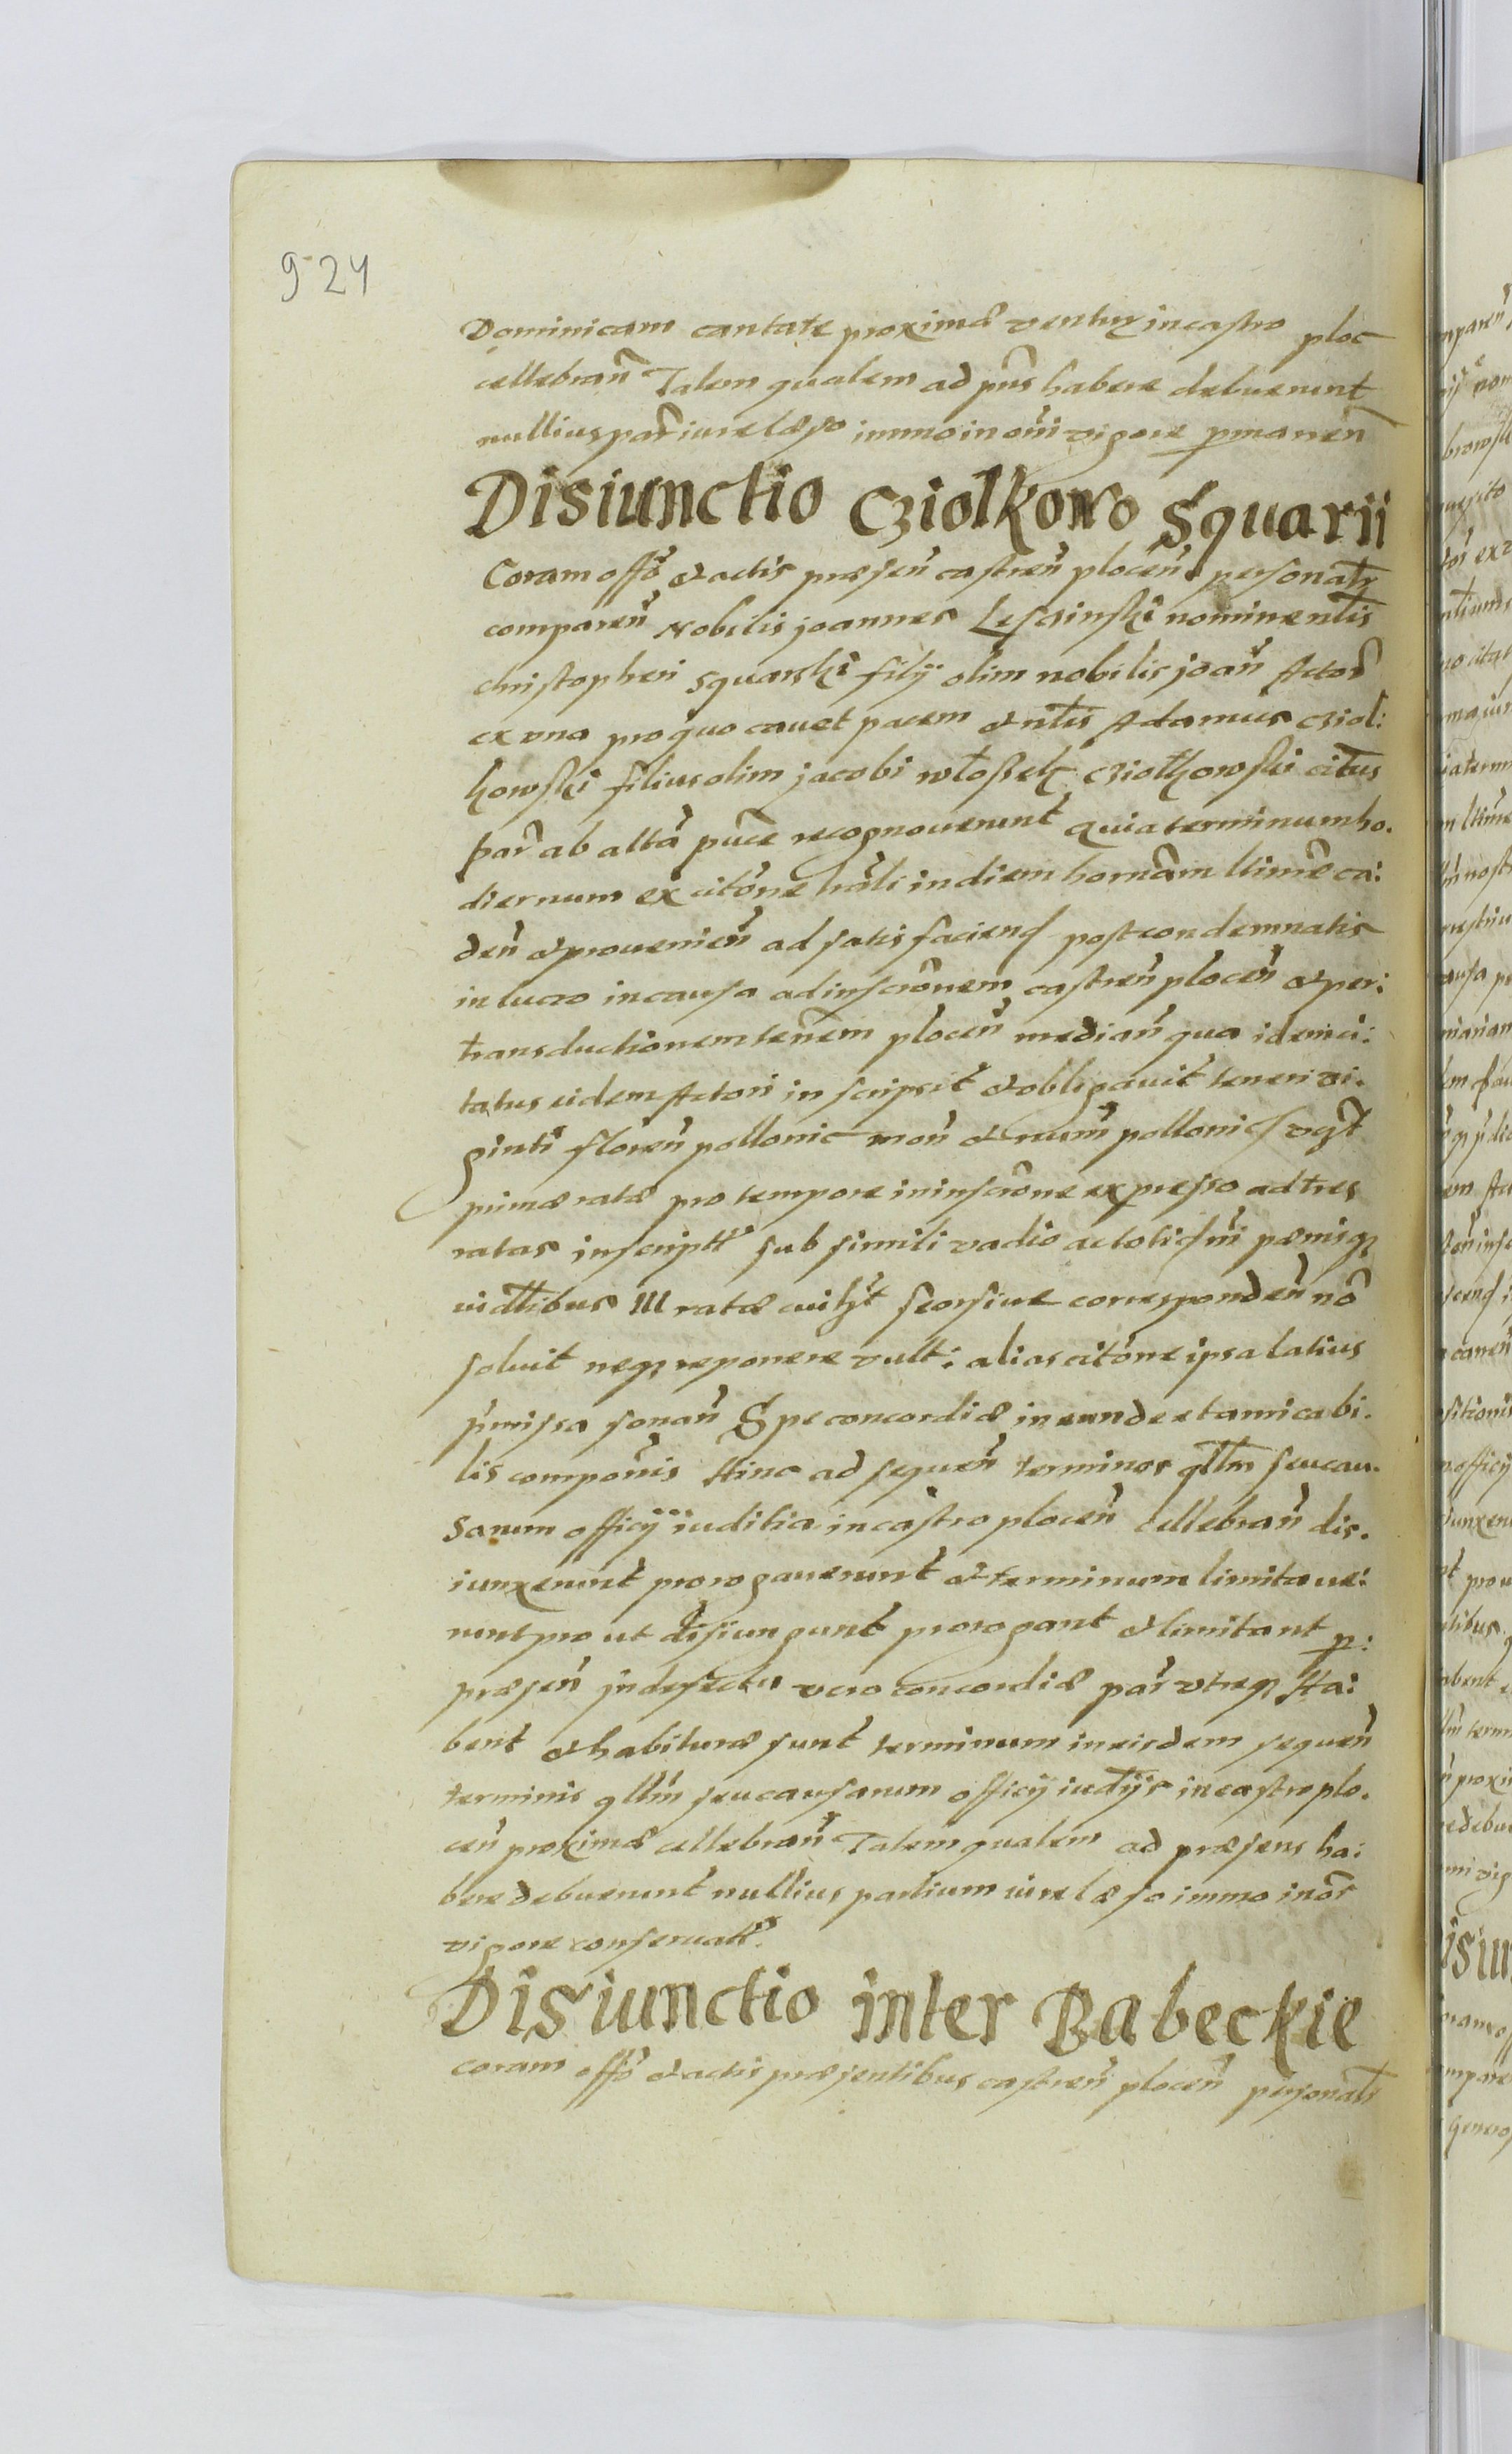 924
Dominicam cantate proximæ ventur in castro ploc
cellebrañ Talem qualem ad pñs habere debuerunt
nullius par̃ iure læso immo in om̃i vigore p̱manen̄
Disiunctio Cziolkowo Squarii
Coram offõ & actis præsen̄ castren̄ plocen̄ personalr̃
comparen̄ Nobilis joannes Lesczinski nomine nl̃is
christopheri squarski filij olim nobilis joan̄ Actor̃
ex vna pro quo cauet pacem & nl̃is Adamus cziol:
kowski filius olim jacobi włossek cziołkowski citus
par̃ ab altã puce recognouerunt quia terminum ho.
diernum ex citõne trãli in diem hornãm ltimẽ ca:
den̄ & prouenien̄ ad satis faciend post condemnatis
in lucro in causa ad inscrõnem castren̄ plocen̄ & per:
transductionem teñem plocen̄ median̄ qua idem ci:
tatus eidem Actori in scripsit & obligauit teneri vi.
ginti floren̄ pollonic mon̄ & num̄ pollonic
primæ ratæ pro tempore in inscrõne expresso ad tres
ratas inscript sub simili vadio ac toti dñi pænisq
uidłibus III ratæ seorsiue corresponden̄ nõ
soluit neq reponere vult: alias citõne ipsa latius
p̃missa sonan̄ Spe concordiæ ineundæ et amicabi.
lis componis Hinc ad sequen̄ terminos qllm seu cau.
sarum officij iuditia in castro plocen̄ cellebran̄ dis.
iunxerunt prorogauerunt & terminum limitaue:
runt pro ut disiungunt prorogant & limitant p̱:
præsen̄ Jn defectu vero concordiæ par̃ vtræq Ha:
bent & habituræ sunt terminum in eisdem sequen̄
terminis qllm seu causarum officij iudijs in castro plo.
cen̄ proximæ cellebran̄ Talem qualem ad præsens ha:
bere debuerunt nullius partium iure læso immo in or̃
vigore conseruatt.
Disiunctio inter Babeckie
coram offõ & actis præsentibus castren̄ plocen̄ personalr̃